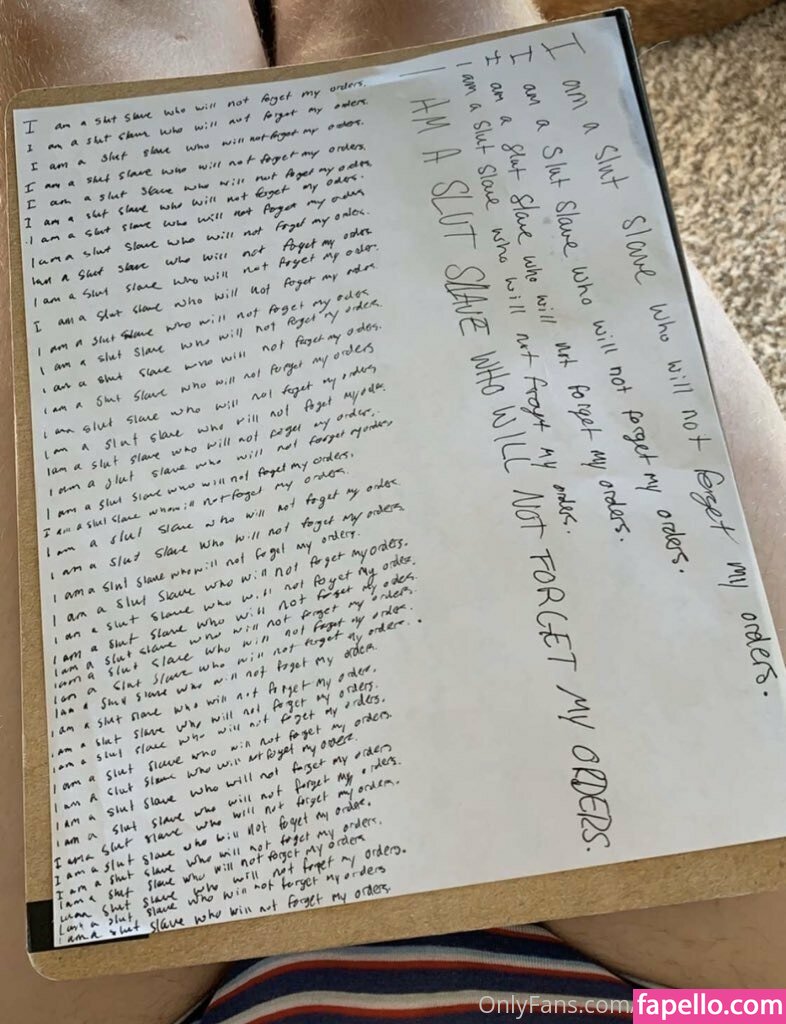 I am a slut slave who will not forget my orders.
I am a slut slave who will not forget my orders.
I am a slut slave who will not forget my orders.
I am a slut slave who will not forget my orders.
I am a slut slave who will not forget my orders.
I am a slut slave who will not forget my orders.
I am a slut slave who will not forget my orders
I am a slut slave who will not forget my orders.
I am a slut slave who will not forget my orders
I am a slut slave who will not forget my orders.
I am a slut slave who will not forget my orders
I am a slut slave who will not forget my orders
I am a slut slave who will not forget my orders.
I am a slut slave who will not forget my orders.
I am a slut slave who will not forget my orders
I am slut slave who will not forget my orders
I am a slut slave who will not forget my orders
I am a slut slave who will not forget my orders.
I am a slut slave who will not forget my orders
I am a slut slave who will not forget my orders.
I am a slut slave who will not forget my orders.
I am a slut slave who will not forget my orders
I am a slut slave who will not forget my orders.
I am a slut slave who will not forget my orders.
I am a slut slave who will not forget my orders.
I am a slut slave who will not forget my orders.
I am a slut slave who will not forget my orders.
I am a slut slave who will not forget my orders.
I am a slut slave who will not forget my orders.
I am a slut slave who will not forget my orders.
I am a slut slave who will not forget my orders
I am a slut slave who will not forget my orders.
I am a slut slave who will not forget my orders.
I am a slut slave who will not forget my orders.
I am a slut slave who will not forget my orders.
I am a slut slave who will not forget my orders.
I am a slut slave who will not forget my orders
I am a slut slave who will not forget my orders.
I am a slut slave who will not forget my orders.
I am a slut slave who will not forget my orders.
I am a slut slave who will not forget my orders.
I am a slut slave who will not forget my orders
slut slave who will not forget my orders.
slut slave who will not forget my orders
I am a slut slave who will not forget my orders
I am a slut slave who will not forget my orders.
I am a slut slave who will not forget my orders.
I am a slut slave who will not forget my orders.
I am a slut slave who will not forget my orders.
I AM A SLUT SLAVE WHO WILL NOT FORGET MY ORDERS.
OnlyFans.com/
fapello.com